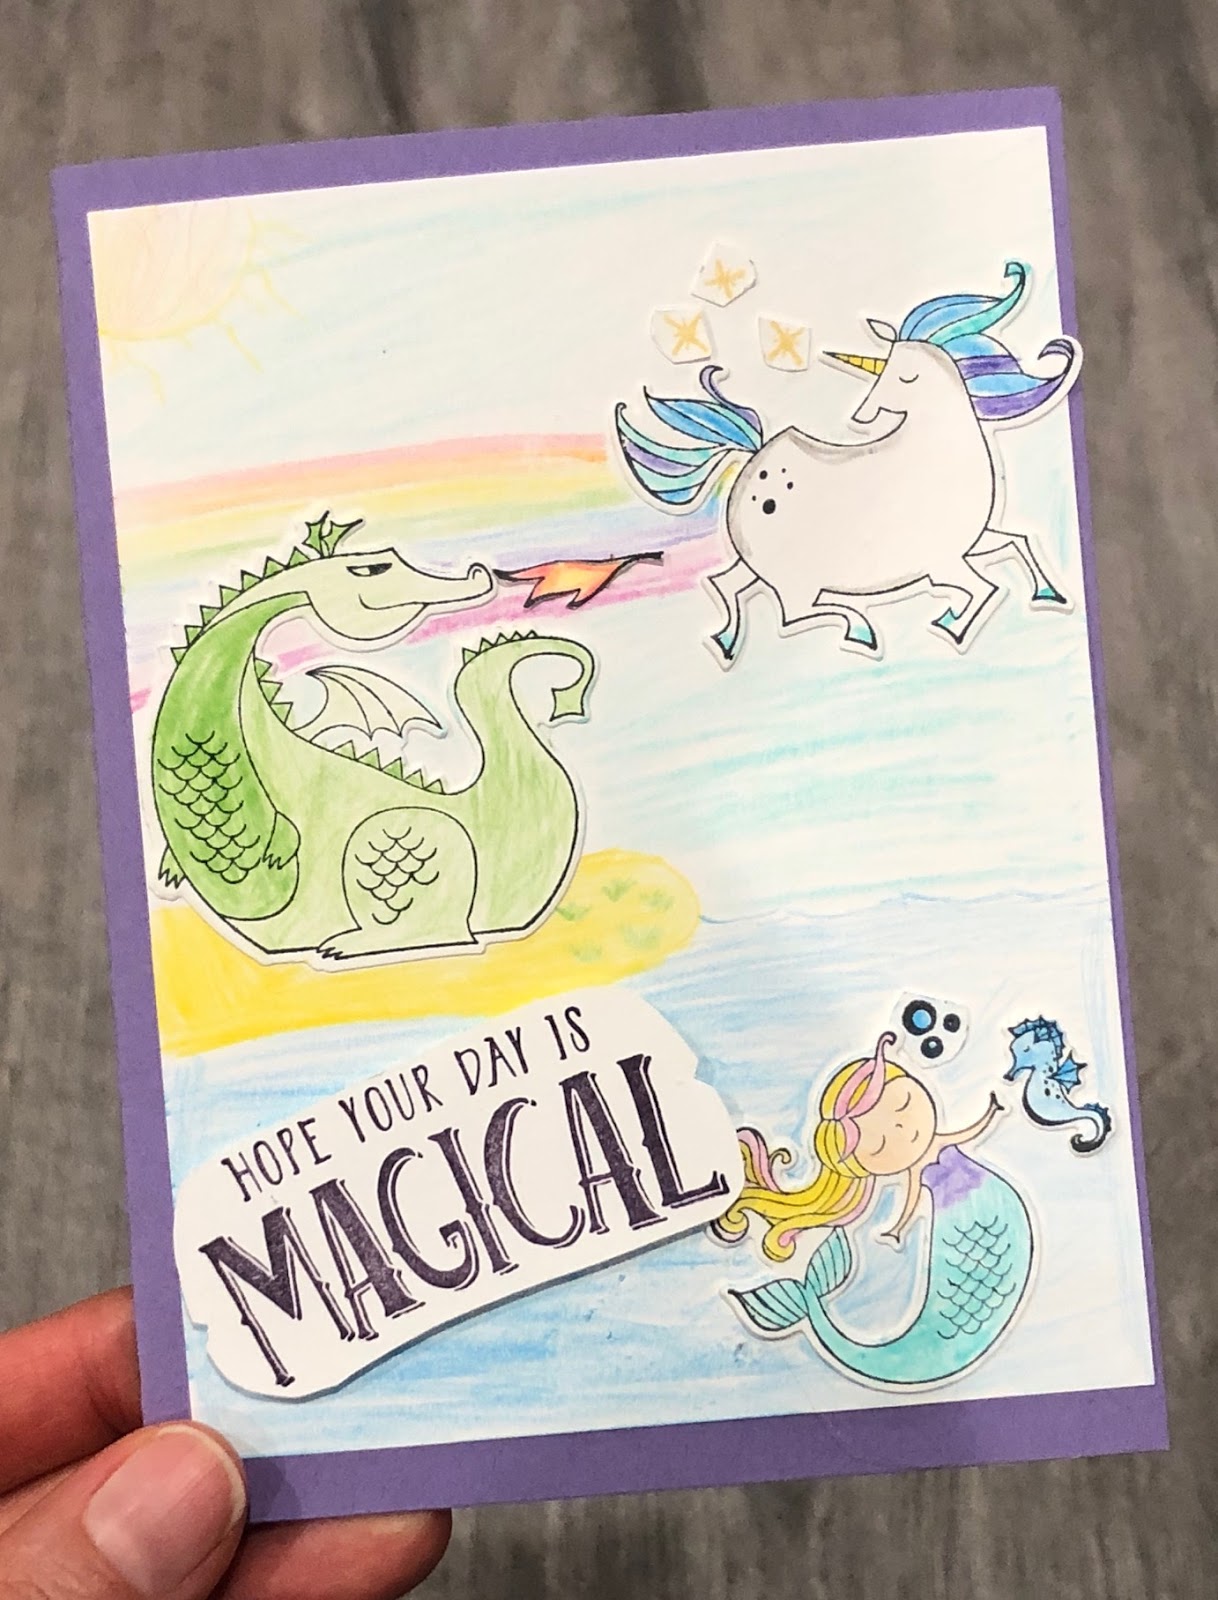 HOPE YOUR DAY IS
MAGICAL